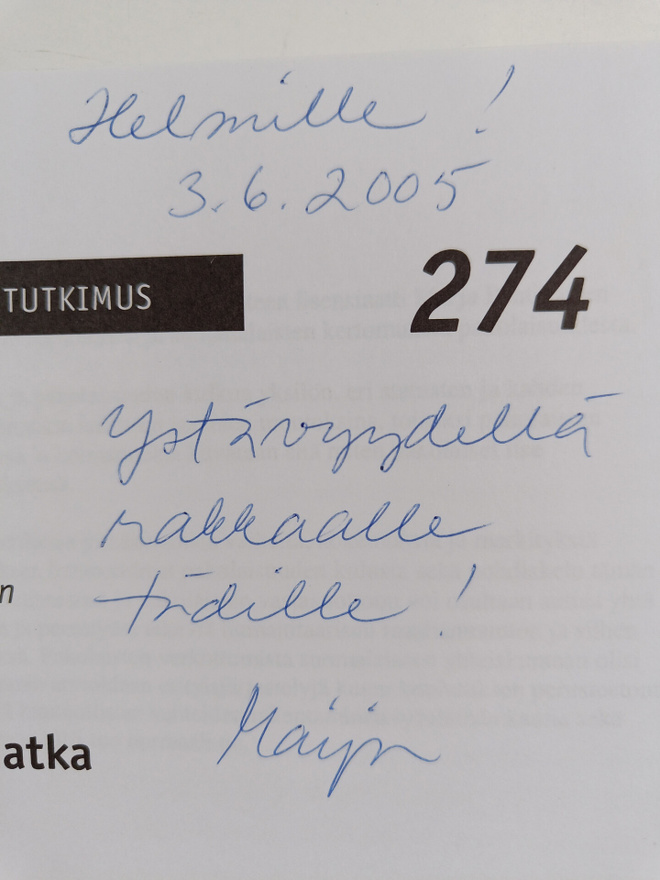 Helmille !
3.6.2005
TUTKIMUS
274
Ystävyydellä
rakkaalle
tädille !
n
atka
Maija